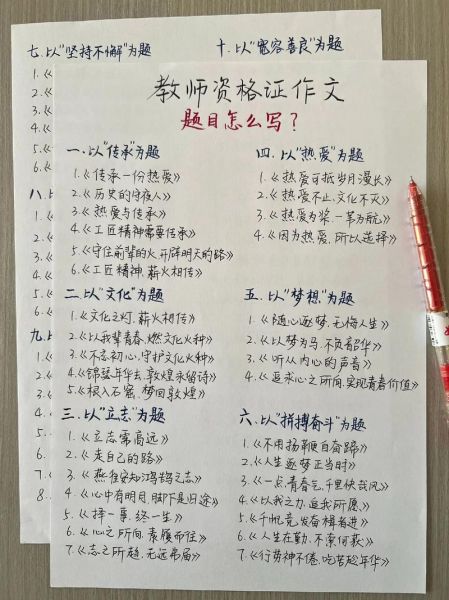 七.以"坚持不懈"为题
十.以"宽容善良"为题
1.《
2.《
3.《
4.《
5.《
6.《
八.
1.
2.
3.《
4.《
5.《
6.《
九.
1.《
2.《
7.《
8.《
教师资格证作文
题目怎么写?
一.以"传承"为题
1.《传承一份热爱》
2.《历史的守夜人》
3.《热爱与传承》
4.《工匠精神需要传承》
5.《守住前辈的火,开辟明天的路》
6.《工匠精神,薪火相传》
二.以"文化"为题
1.《文化之灯,薪火相传》
2.《以我辈青春,燃文化火种》
3.《不忘初心,守护文化火种》
4.《锦瑟年华去,敦煌永留诗》
5.《根入石窟,梦回敦煌》
三.以"立志"为题
1.《立志需高远》
2.《走自己的路》
3.《燕雀安知鸿鹄之志》
4.《心中有明月,脚下是归途》
5.《择一事,终一生》
6.《心之所向,素履而往》
7.《志之所趋,无远弗届》
四.以"热爱"为题
1.《热爱可抵岁月漫长》
2.《热爱不止,文化不灭》
3.《热爱为桨,一苇为航》
4.《因为热爱,所以选择》
五.以"梦想"为题
1.《随心逐梦,无悔人生》
2.《以梦为马,不负韶华》
3.《听从内心的声音》
4.《追求心之所向,实现青春价值》
六.以"拼搏奋斗"为题
1.《不用扬鞭自奋蹄》
2.《人生逐梦正当时》
3.《一点青春气,千里快哉风》
4.《以我之力,追我所愿》
5.《千帆竞发奋楫者进》
6.《人生在勤,不索何获》
7.《行劳神不倦,吃苦趁年华》